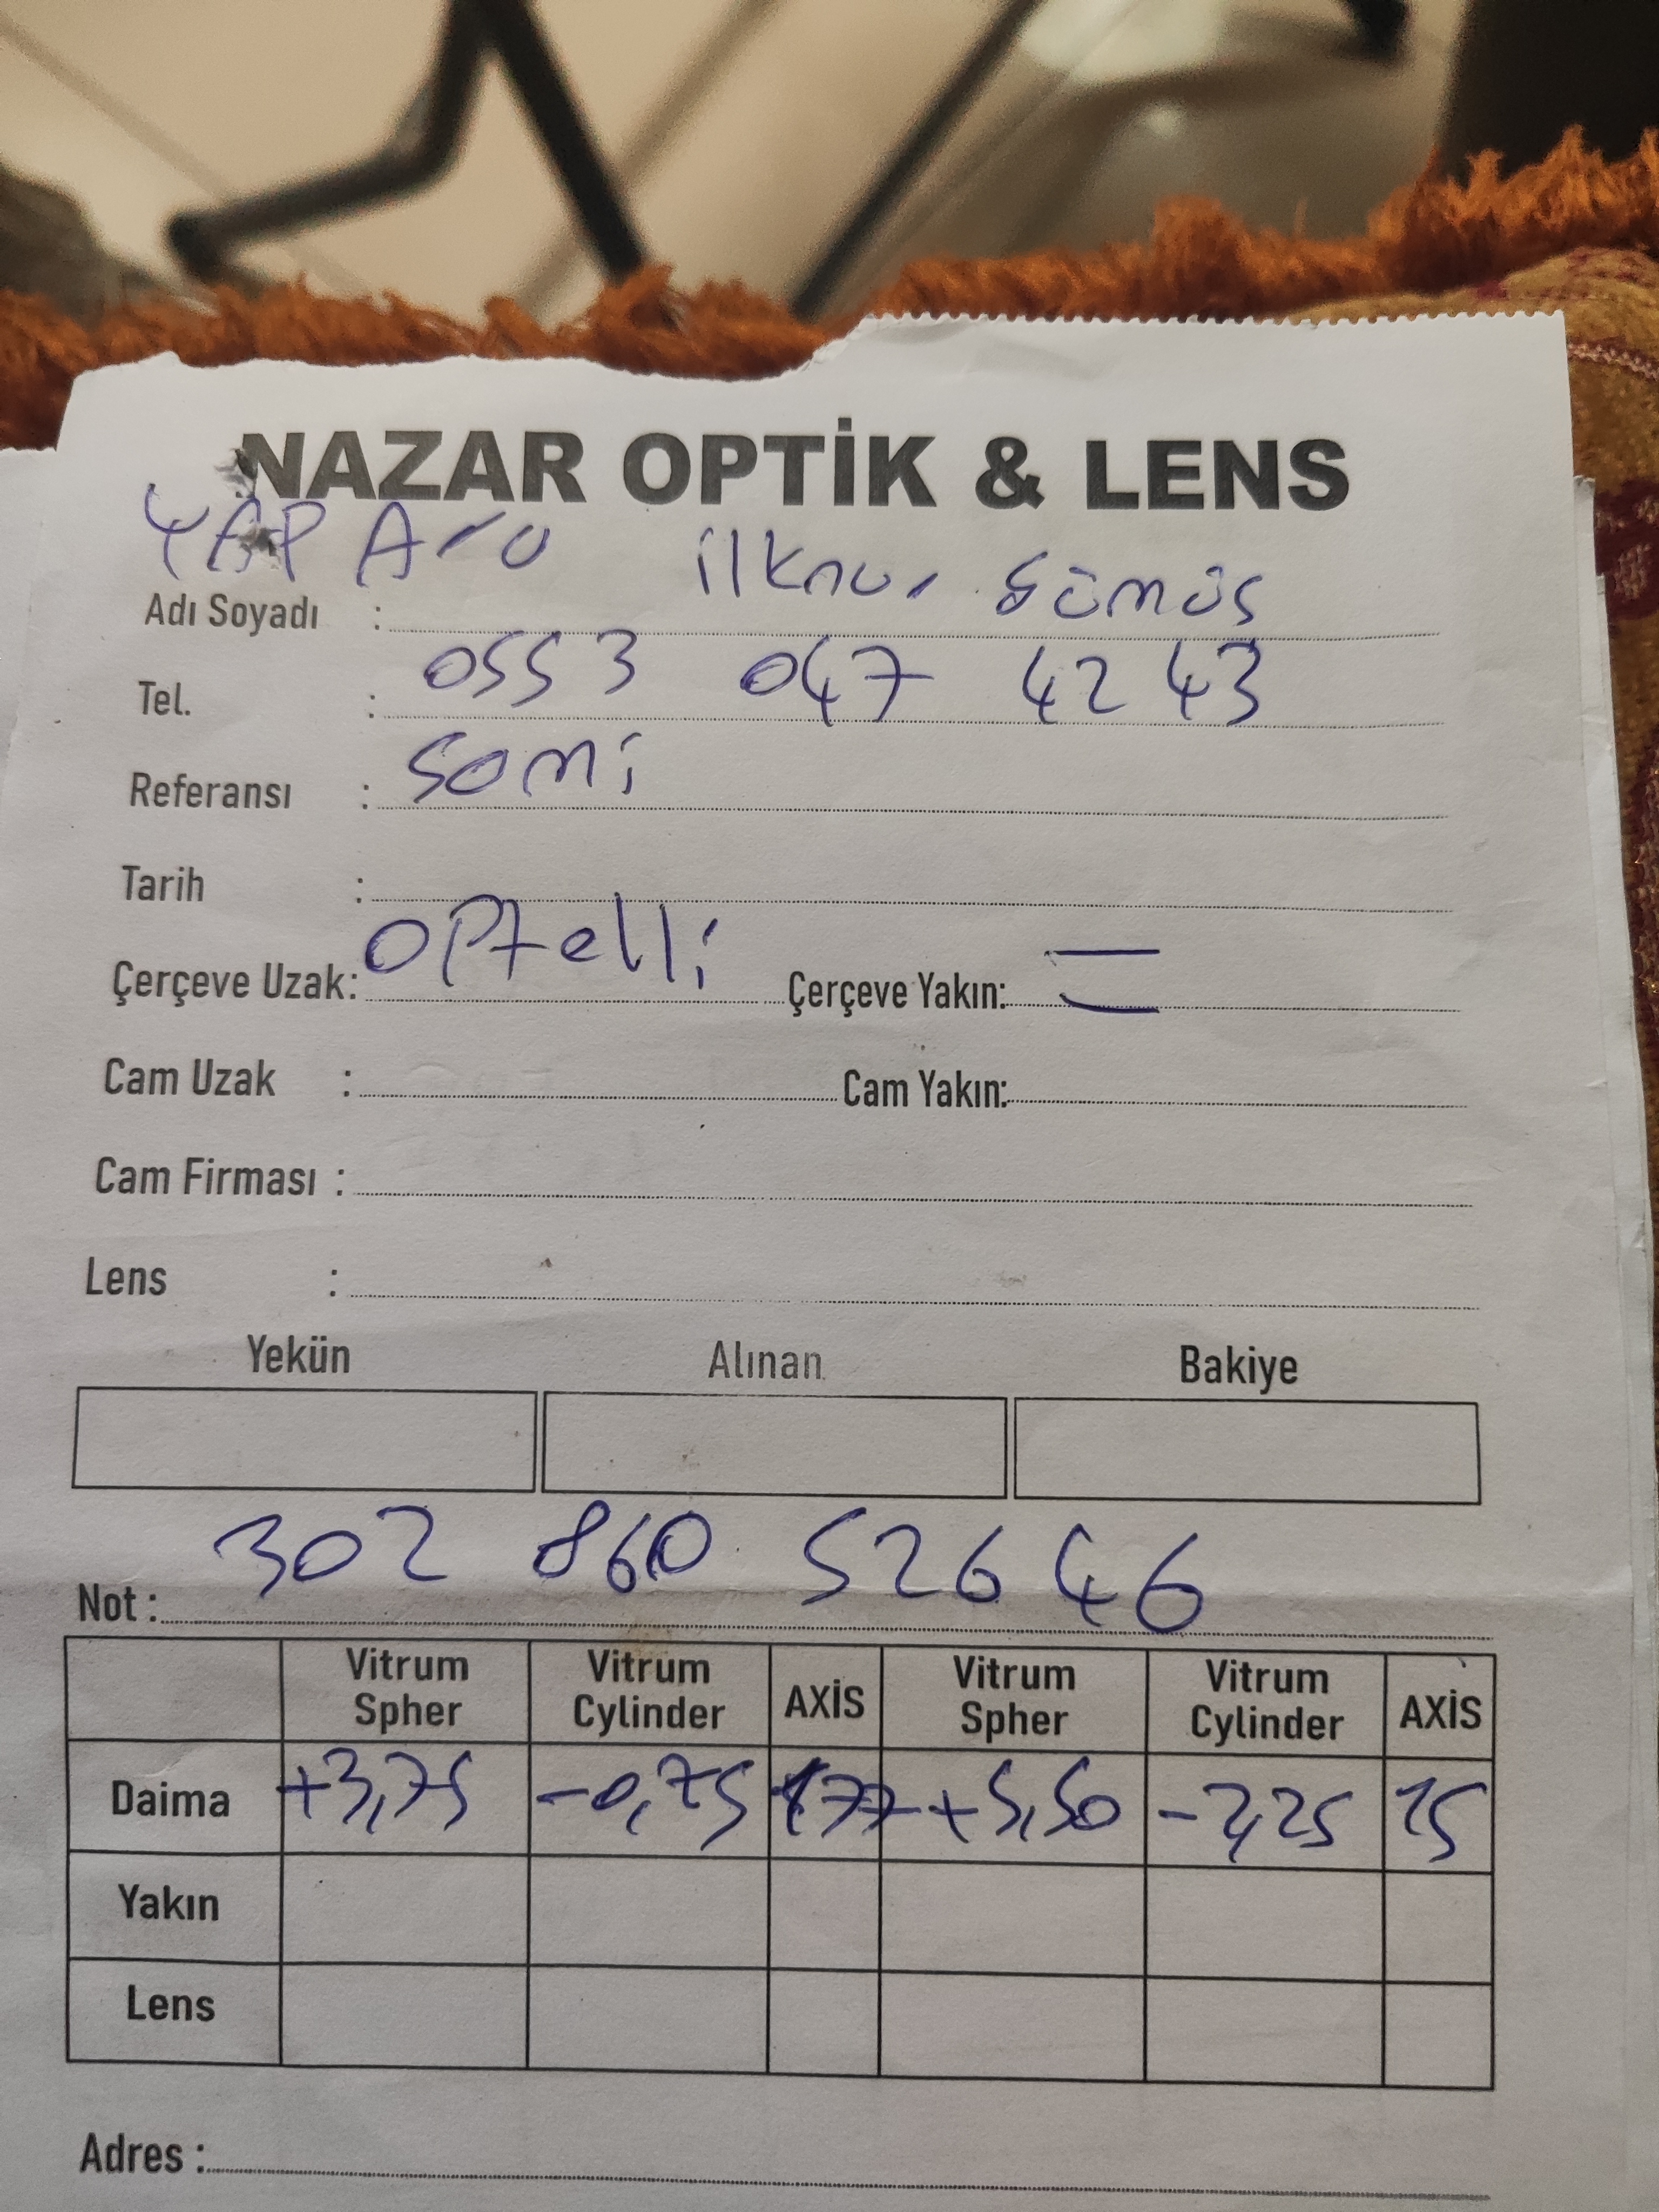 NAZAR OPTİK & LENS
YAP Ara
Adı Soyadı : ilknur Gümüş
Tel. : 0553 047 42 43
Referansı : Sami
Tarih :
Çerçeve Uzak: OPtelli Çerçeve Yakın:
Cam Uzak : Cam Yakın:
Cam Firması :
Lens :
Yekün Alınan Bakiye
302 860 526 46
Not :
Vitrum Spher Vitrum Cylinder AXİS Vitrum Spher Vitrum Cylinder AXİS
Daima +3,75 -0,75 177 +5,50 -2,25 15
Yakın
Lens
Adres :